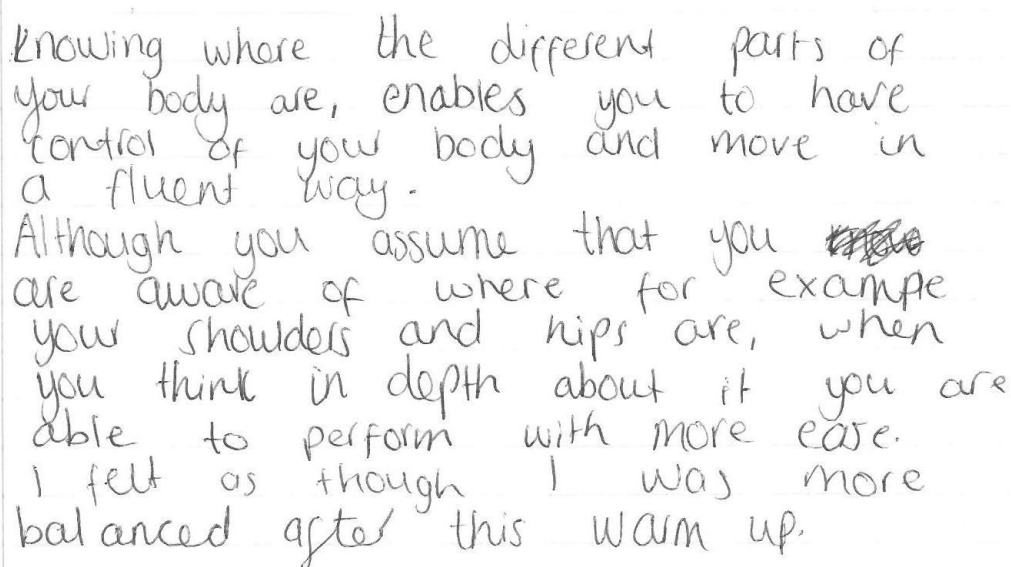 Knowing where the different parts of
your body are, enables you to have
control of your body and move in
a fluent way.
Although you assume that you
are aware of where for exampe
your shoulders and hips are, when
you think in depth about it you are
able to perform with more ease.
I felt as though I was more
balanced after this warm up.